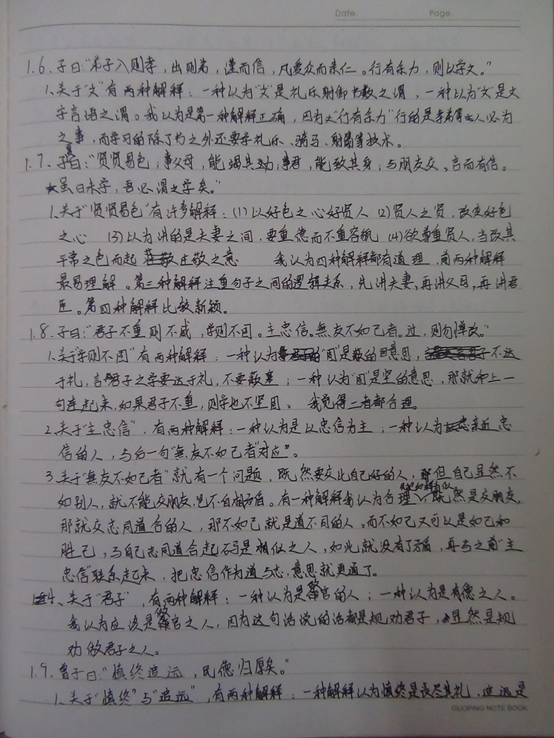 Date. Page.
1.6. 子曰:"弟子入则孝,出则弟,谨而信,凡爱众而亲仁。行有余力,则以学文。"
1.关于"文"有两种解释:一种认为"文"是礼乐射御书数之谓,一种以为"文"是文
字言语之谓。我以为是第一种解释正确,因为文"行有余力""行"的是孝弟等人必为
之事,而学习的除了书之外还要学礼乐、骑马、射箭等技术。
1.7. 子曰:"贤贤易色,事父母,能竭其力,事君,能致其身,与朋友交,言而有信。
虽曰未学,吾必谓之学矣。"
1.关于"贤贤易色"有许多解释:(1)以好色之心好贤人 (2)贤人之贤,改变好色
之心 (3)以为讲的是夫妻之间,要重德而不重容貌 (4)欲尊重贤人,当改其
平常之色而起庄敬之意 我认为四种解释都有道理,前两种解释
最易理解。第三种解释注重句子之间的逻辑关系,先讲夫妻,再讲父母,再讲君
臣。第四种解释比较新颖。
1.8. 子曰:"君子不重则不威,学则不固。主忠信。無友不如己者。过,则勿惮改。"
1.关于"学则不固"有两种解释:一种认为"固"是蔽的意思,不达
于礼,言君子之学要达于礼,不要蔽塞;一种认为"固"是坚的意思,那就和上一
句连起来,如果君子不重,则学也不坚固。 我觉得二者都合理。
2.关于"主忠信",有两种解释:一种认为是以忠信为主;一种认为亲近忠
信的人,与后一句"無友不如己者"对应。
3.关于"無友不如己者"就有一个问题,既然要交比自己好的人,但自己显然不
如别人,就不能交朋友,岂不自相矛盾。有一种解释我认为合理,既然是交朋友,
那就交志同道合的人,那不如己就是道不同的人,而不如己又可以是如己和
胜己,与自己志同道合起码是相似之人,如此就没有了矛盾,再与之前"主
忠信"联系起来,把忠信作为道与志,意思就更通了。
4、关于"君子",有两种解释:一种认为是当官的人;一种认为是有德之人。
我认为应该是当官之人,因为这句话说的话都是规劝君子,显然是规
劝做君子之人。
1.9. 曾子曰:"慎终追远,民德归厚矣。"
1.关于"慎终"与"追远",有两种解释:一种解释认为慎终是丧尽其礼,追远是
GUOPING NOTE BOOK